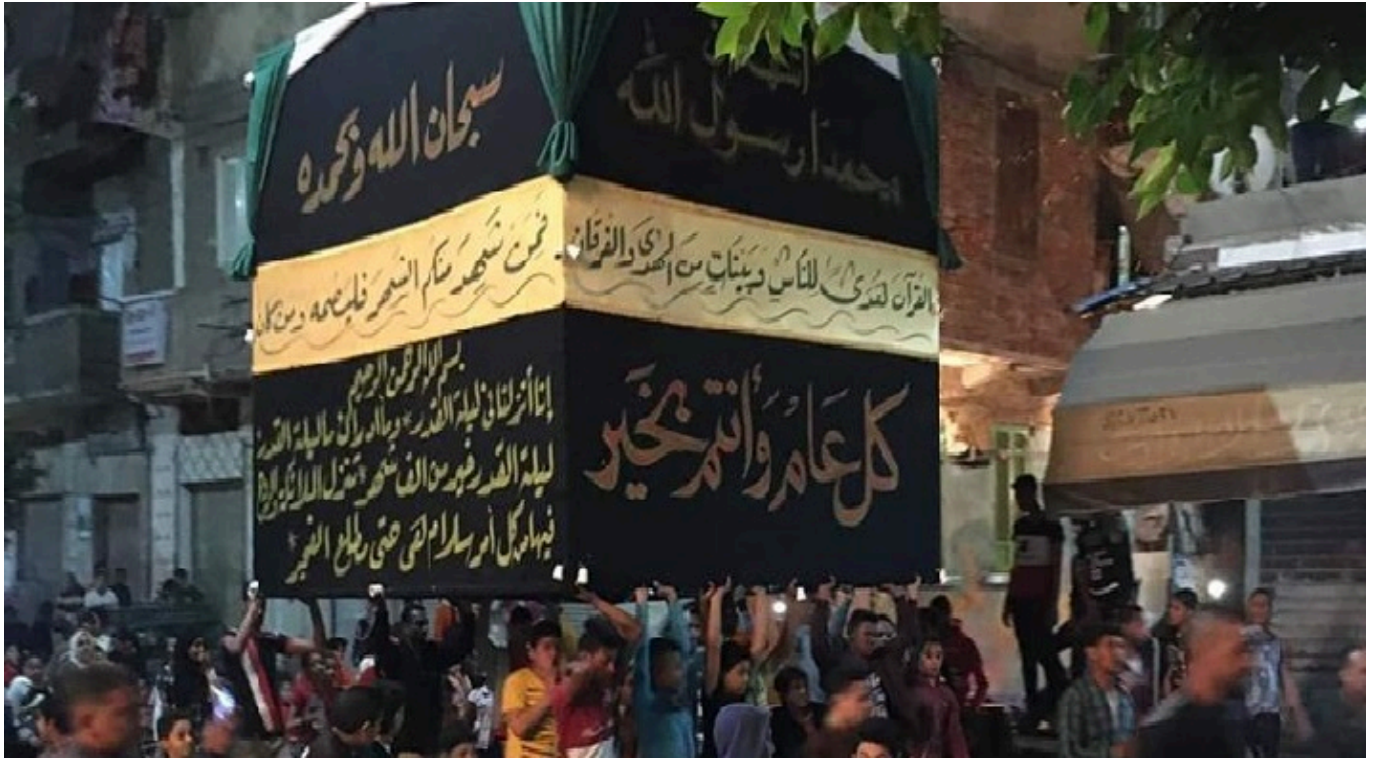 سبحان الله وبحمده
محمدا رسول الله
فمن شهد منكم الشهر فليصمه ومن كان
القرآن هدى للناس وبينات من الهدى والفرقان
بسم الله الرحمن الرحيم
إنا أنزلناه في ليلة القدر * وما أدراك ما ليلة القدر
ليلة القدر خير من الف شهر * تنزل الملائكة والروح
فيها من كل أمر سلام هي حتى مطلع الفجر *
كل عام وأنتم بخير